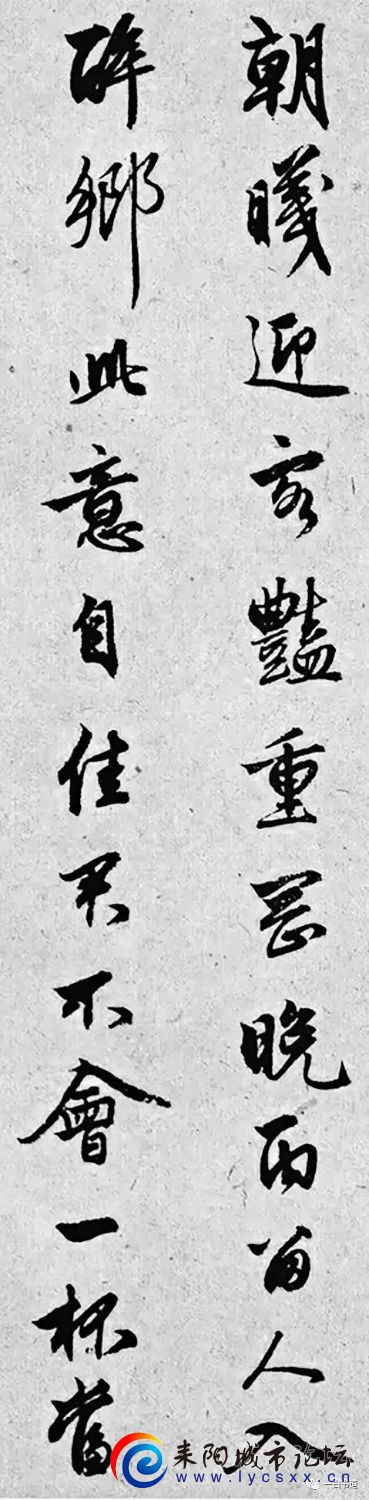 朝曦迎客豔重岡晚雨留人入
醉鄉此意自佳君不會一杯當
耒阳城市论坛
www.lycsxx.cn